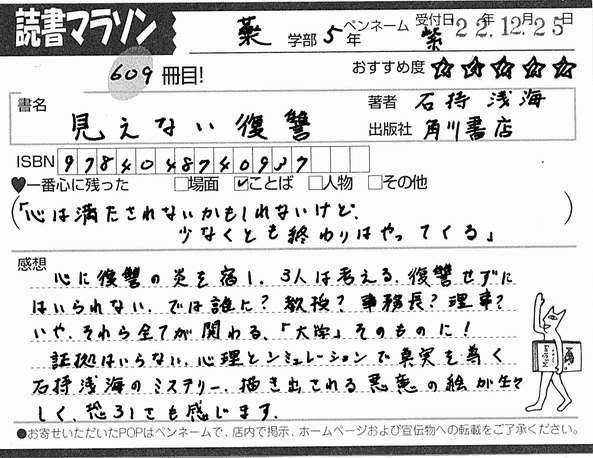 読書マラソン
薬 学部 5 年 ペンネーム 紫 受付日 22年 12月 25日
609 冊目! おすすめ度 ☆☆☆☆☆
書名 見えない復讐
著者 石持 浅海
出版社 角川書店
ISBN 9784048740937
♥一番心に残った □場面 ☑ことば □人物 □その他
(「心は満たされないかもしれないけど、
少なくとも終わりはやってくる」)
感想
心に復讐の炎を宿し、3人は考える、復讐せずに
はいられない。では誰に?教授?事務長?理事?
いや、それら全てが関わる、「大学」そのものに!
証拠はいらない、心理とシミュレーションで真実を導く
石持浅海のミステリー。描き出される悪意の絵が生々
しく、恐ろしさも感じます。
●お寄せいただいたPOPはペンネームで、店内で掲示、ホームページおよび宣伝物への転載をご了承ください。